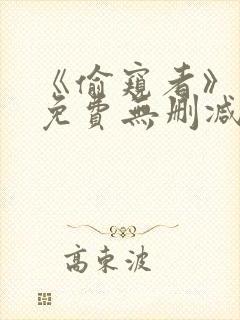 《偷窺者》
免費無刪減
高東波